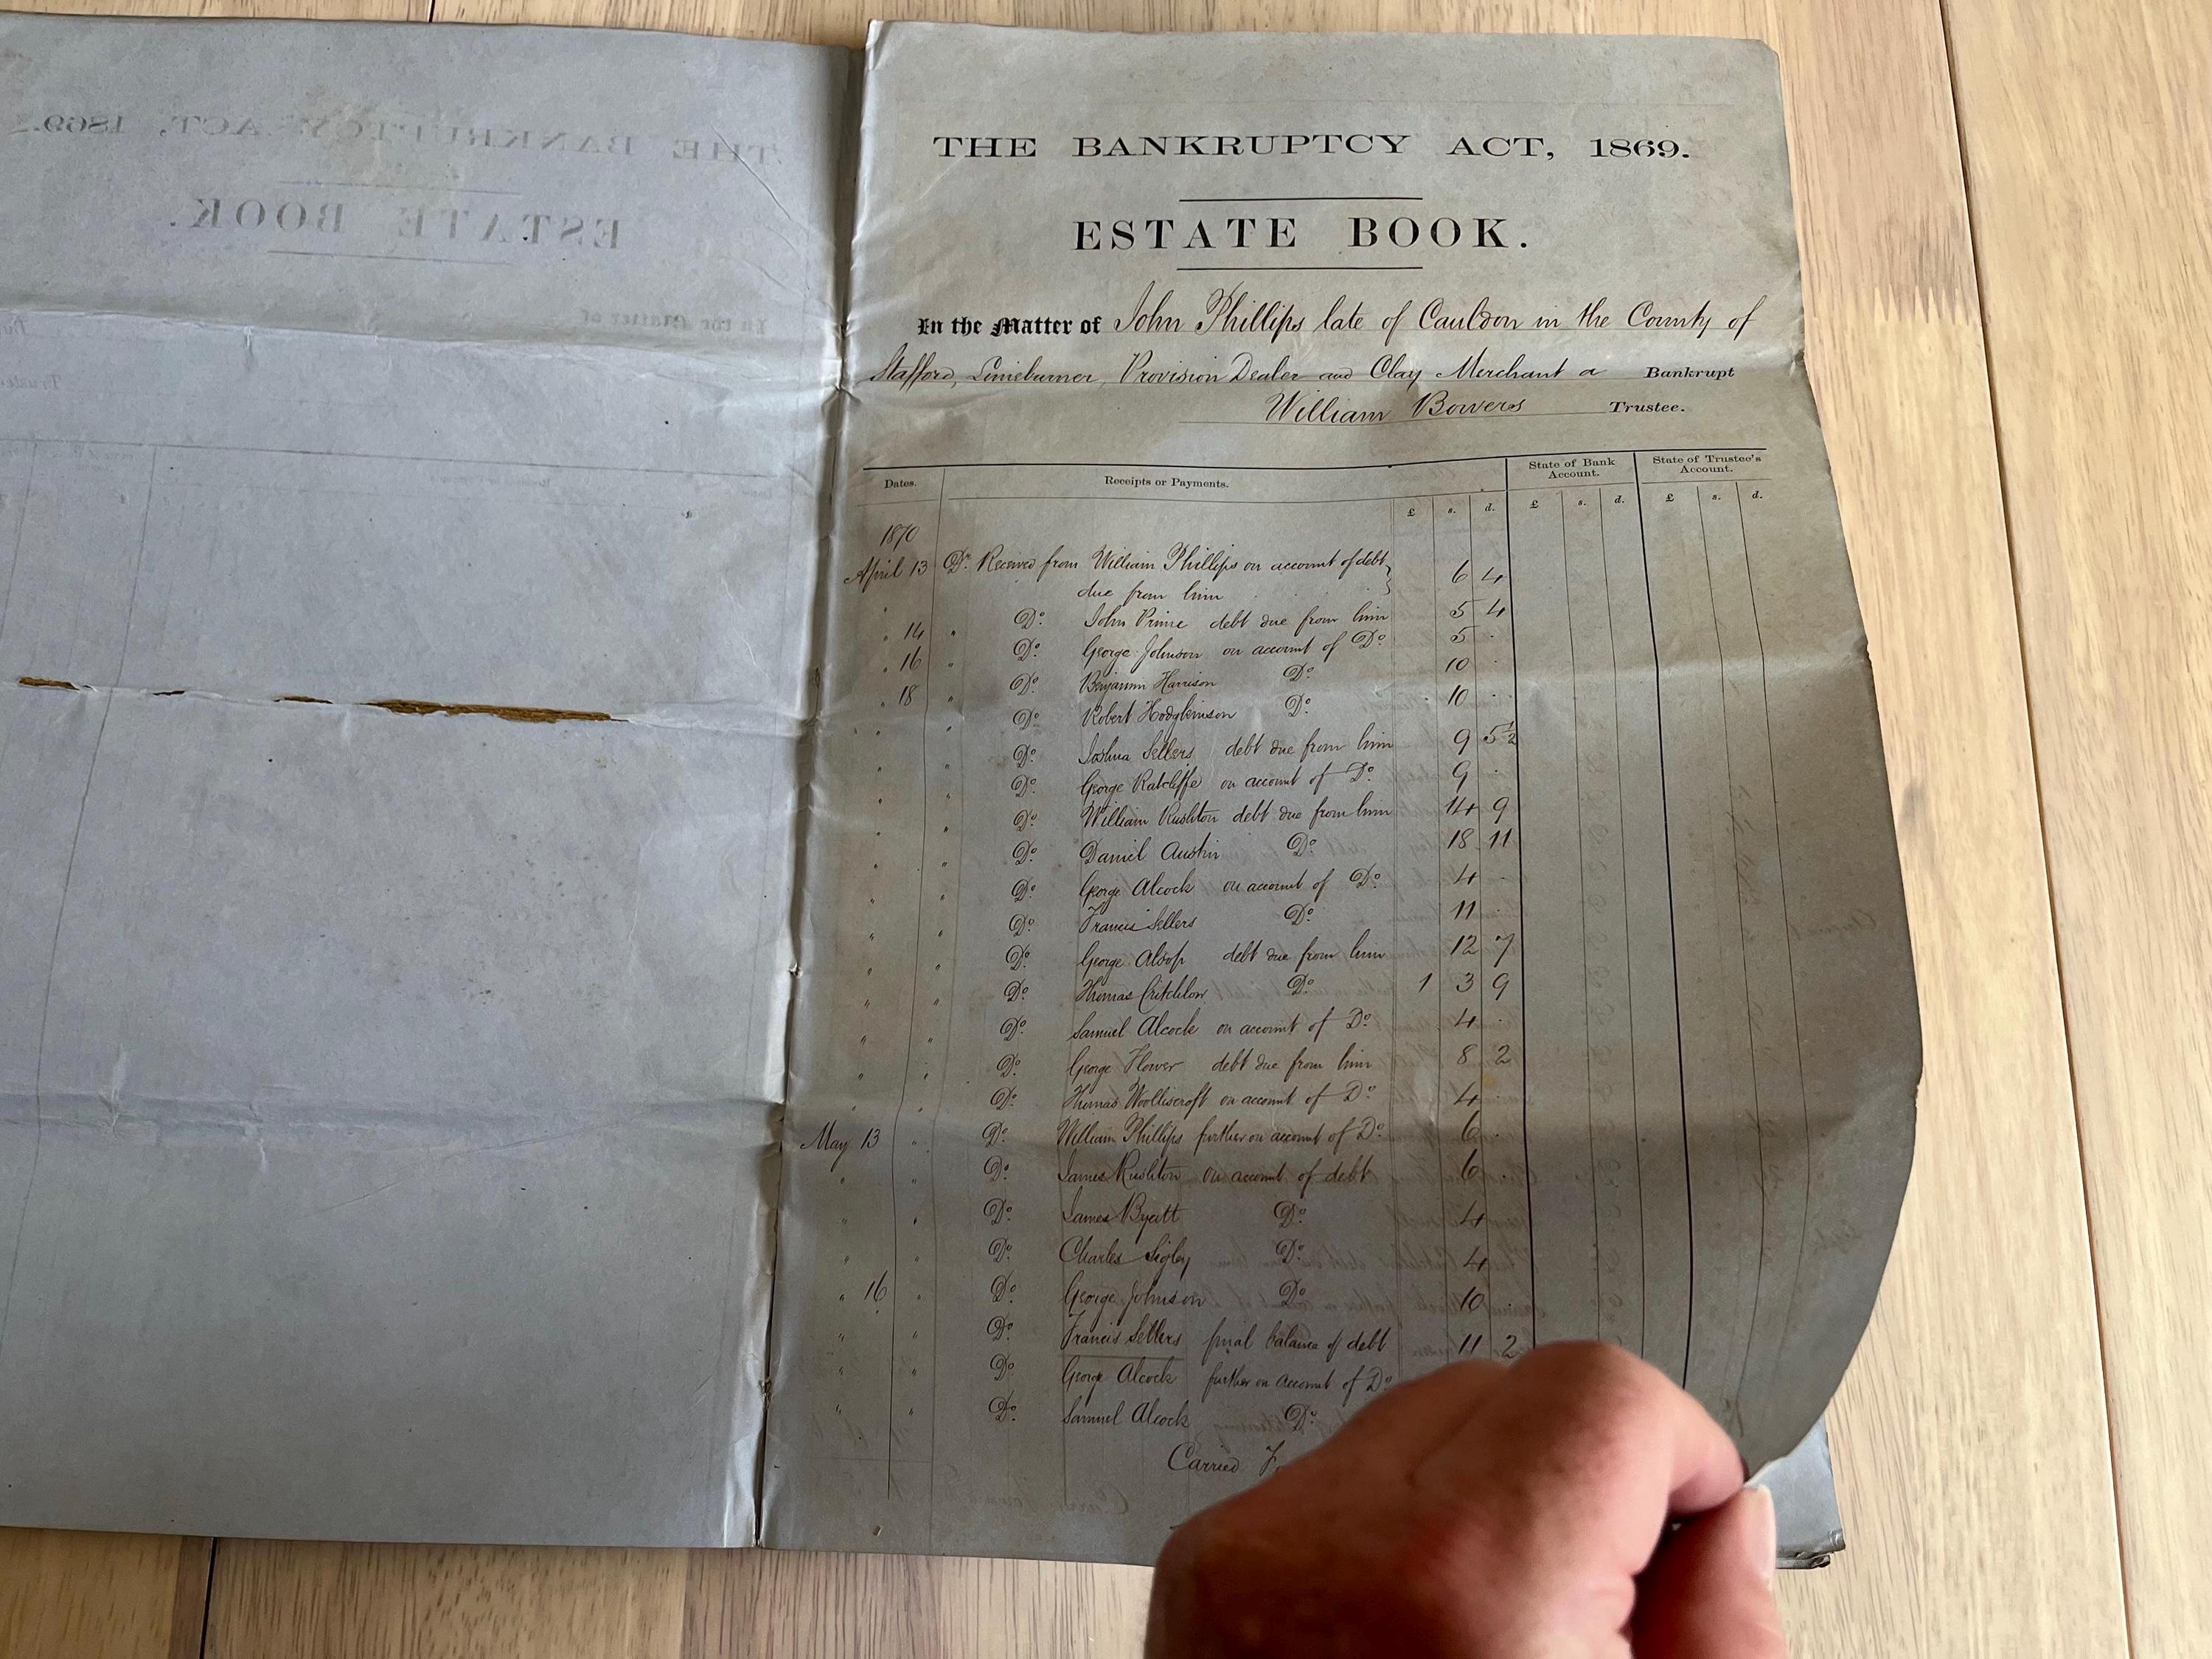 THE BANKRUPTCY ACT, 1869.
ESTATE BOOK.
In the Matter of John Phillips late of Cauldon in the County of
Stafford, Limeburner, Provision Dealer and Clay Merchant a Bankrupt
William Bowers Trustee.
Dates. Receipts or Payments. £ s. d. State of Bank Account. £ s. d. State of Trustee's Account. £ s. d.
1870
April 13 Dr. Received from William Phillips on account of debt
due from him 6 4
" 14 " Do. John Prime debt due from him 5 4
" 16 " Do. George Johnson on account of Do. 5 .
" 18 " Do. Benjamin Harrison Do. 10 .
" " Do. Robert Hodgkinson Do. 10 .
" " Do. Joshua Sellers debt due from him 9 5½
" " Do. George Ratcliffe on account of Do. 9 .
" " Do. William Rushton debt due from him 14 9
" " Do. Daniel Austin Do. 18 11
" " Do. George Alcock on account of Do. 4 .
" " Do. Francis Sellers Do. 11 .
" " Do. George Alsop debt due from him 12 7
" " Do. Thomas Critchlow Do. 1 3 9
" " Do. Samuel Alcock on account of Do. 4 .
" " Do. George Flower debt due from him 8 2
" " Do. Thomas Woolliscroft on account of Do. 4 .
May 13 " Do. William Phillips further on account of Do. 6 .
" " Do. James Rushton on account of debt 6 .
" " Do. James Byatt Do. 4
" " Do. Charles Sigley Do. 4
" 16 " Do. George Johnson Do. 10 .
" " Do. Francis Sellers final balance of debt 11 2
" " Do. George Alcock further on account of Do.
" " Do. Samuel Alcock Do.
Carried